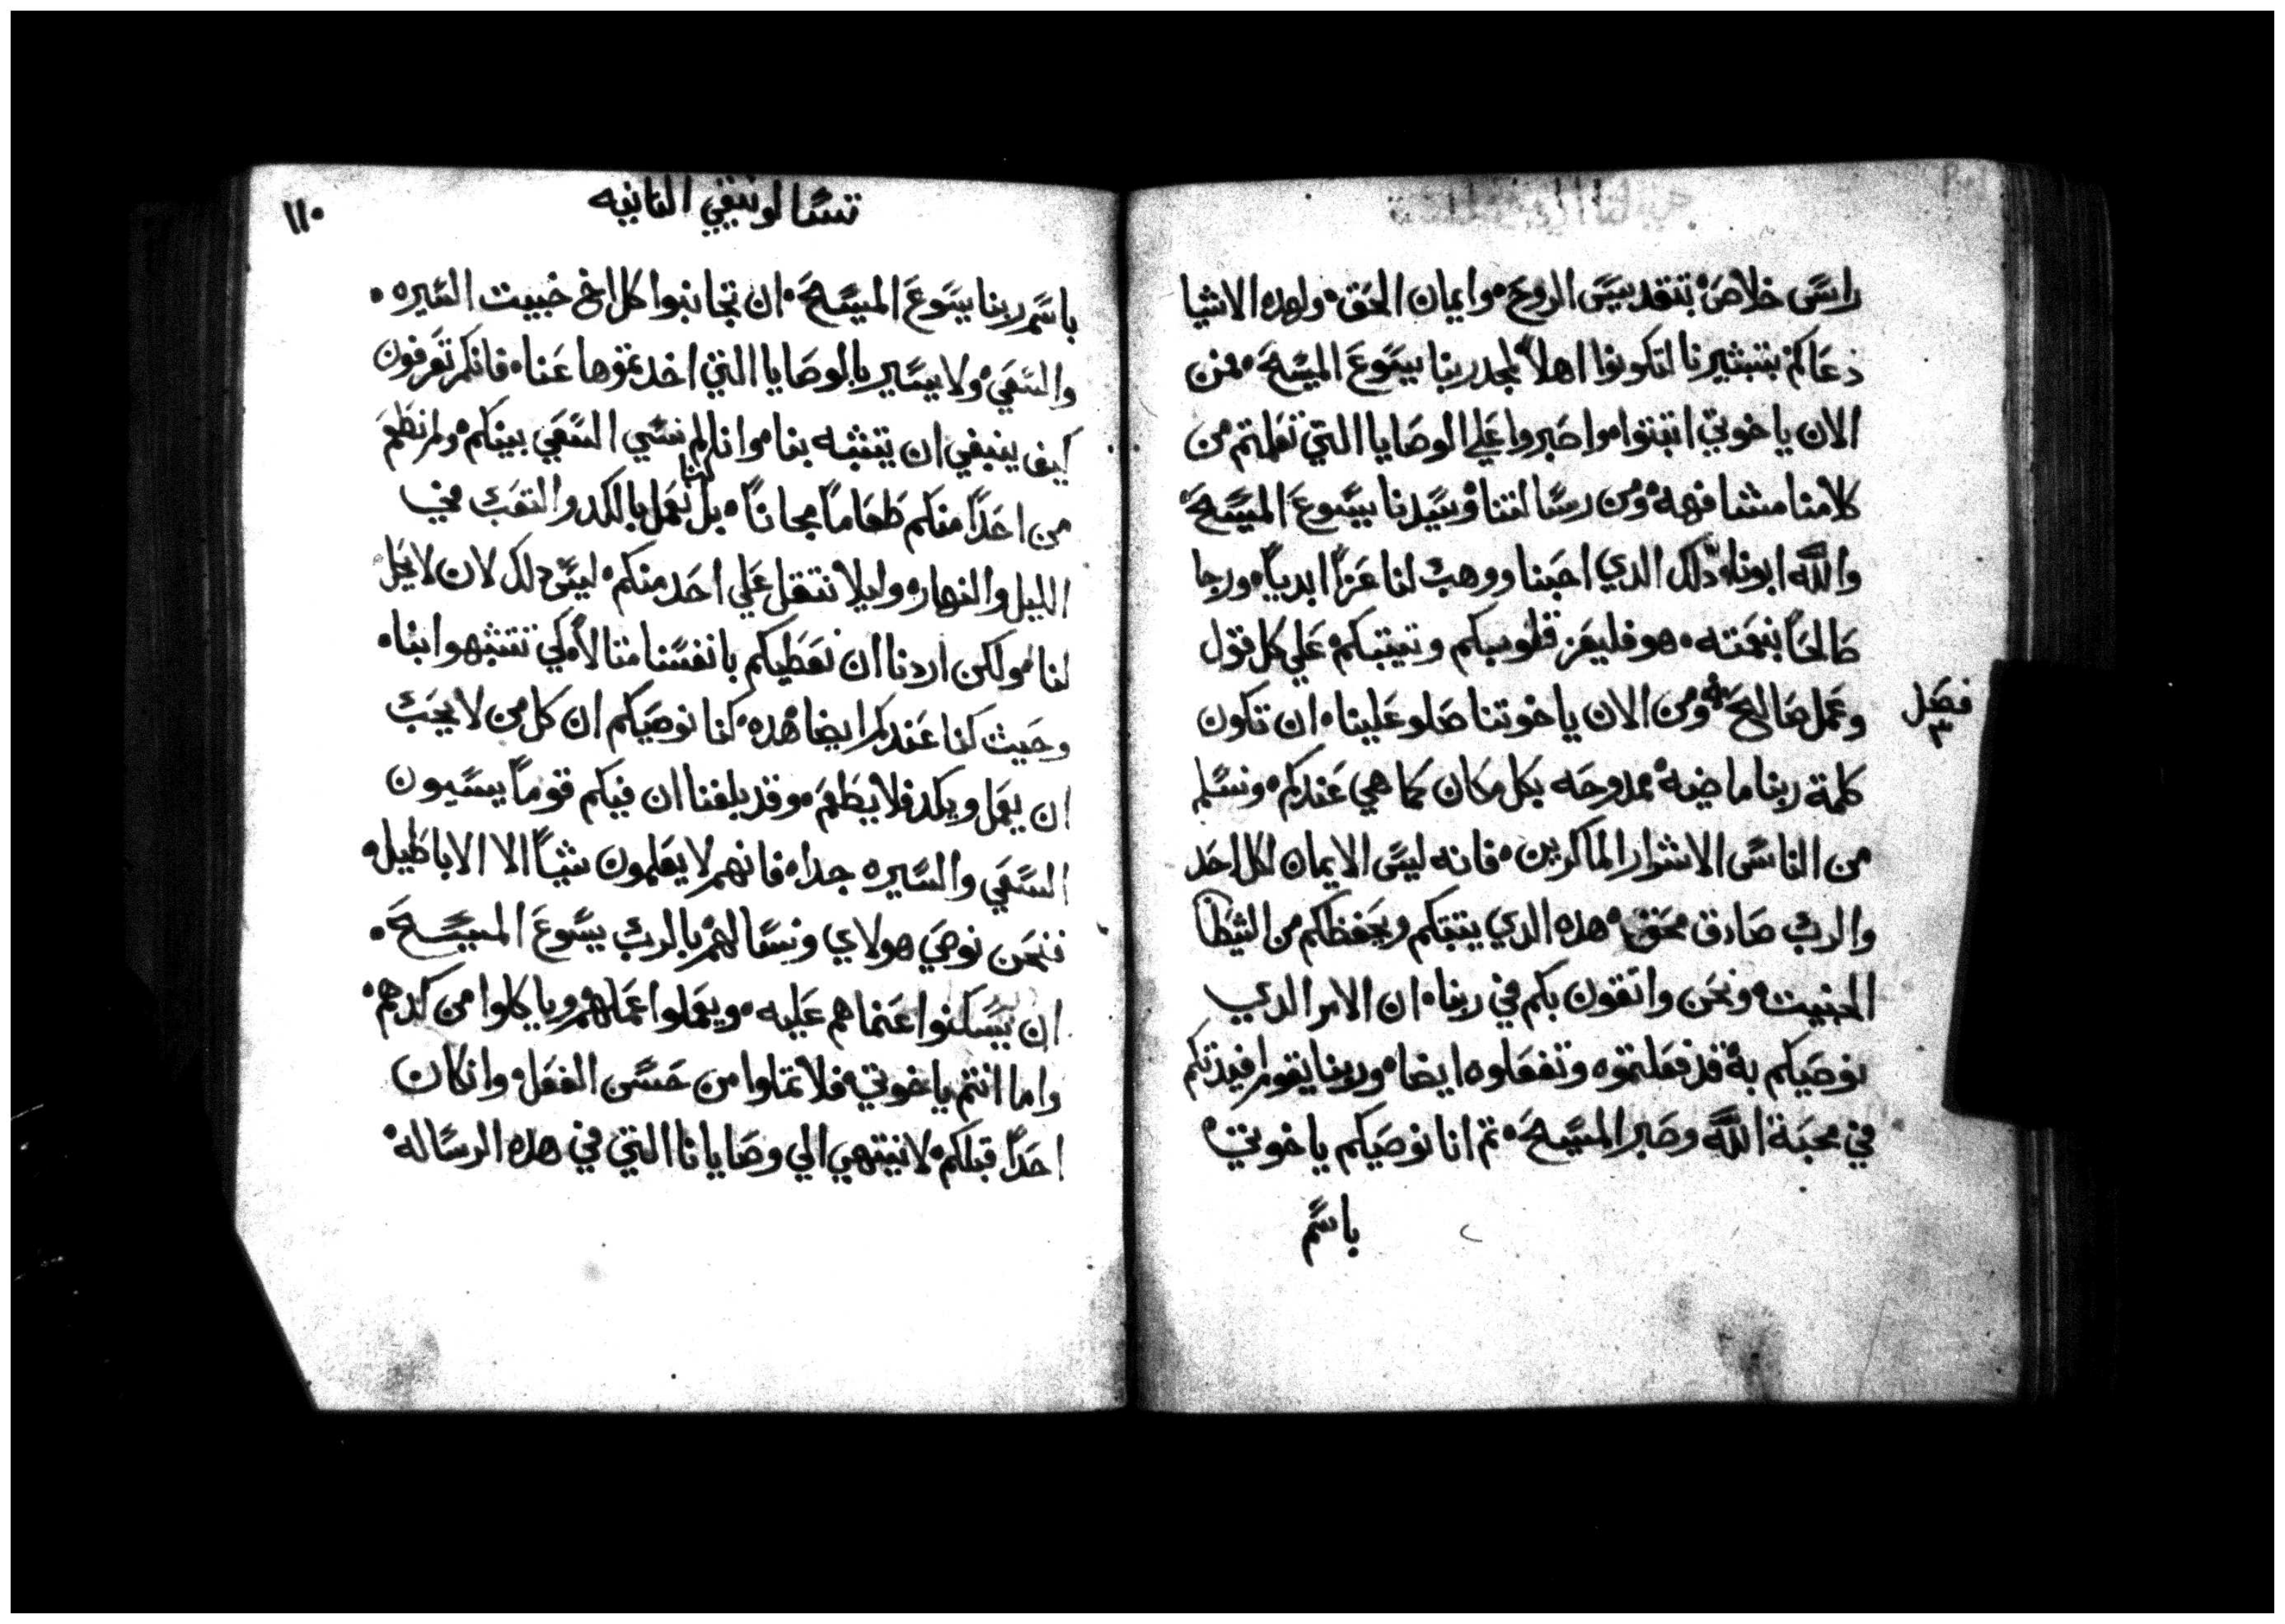 راس خلاص بتقديس الروح وايمان الحق ولهده الاشيا
دعاكم بتبشيرنا لتكونوا اهلاً لمجد ربنا يسوع المسيح فمن
الان ياخوتي اتبتوا واصبروا علي الوصايا التي تعلمتم من
كلامنا مشافهه ومن رسالتنا وسيدنا يسوع المسيح
والله ابونا دلك الدي احبنا ووهب لنا عزاً ابدياً ورجا
صالحاً بنعمته هو فليعز قلوبكم ويتبتكم علي كل قول
وعمل صالح ومن الان ياخوتنا صلو علينا ان تكون
فصل
٣
كلمة ربنا ماضية ممدوحه بكل مكان كما هي عندكم ونسلم
من الناس الاشرار الماكرين فانه ليس الايمان لكل احد
والرب صادق محق هده الدي يتبتكم ويحفظكم من الشيطان
الخبيت ونحن واتقون بكم في ربنا ان الامر الدي
نوصيكم به قد فعلتموه وتفعلوه ايضا وربنا يقوم افيدتكم
في محبة الله وصبر المسيح تم انا نوصيكم ياخوتي
باسم
تسالونيقي التانيه
١١٠
باسم ربنا يسوع المسيح ان تجانبوا كل اخ خبيت السيره
والسعي ولا يسير بالوصايا التي اخدتموها عنا فانكم تعرفون
كيف ينبغي ان يتشبه بنا وانا لم نسي السعي بينكم ولم نطعم
من احداً منكم طعاماً مجاناً بل كنا نعمل بالكد والتعب في
الليل والنهار وليلا نتقل علي احد منكم ليس دلك لان لا يحل
لنا ولكن اردنا ان نعطيكم بانفسنا متالاً كي تتشبهوا بنا
وحيث كنا عندكم ايضا هده كنا نوصيكم ان كل من لا يحب
ان يعمل ويكد فلا يطعم وقد بلغنا ان فيكم قوماً يسيون
السعي والسيره جدا فانهم لا يعلمون شياً الا الاباطيل
فنحن نوصي هولاي ونسالهم بالرب يسوع المسيح
ان يسكنوا عنما هم عليه ويعملوا عملهم وياكلوا من كدهم
واما انتم ياخوتي فلا تملوا من حسن الفعل وان كان
احداً قبلكم لا ينتهي الي وصايانا التي في هده الرساله